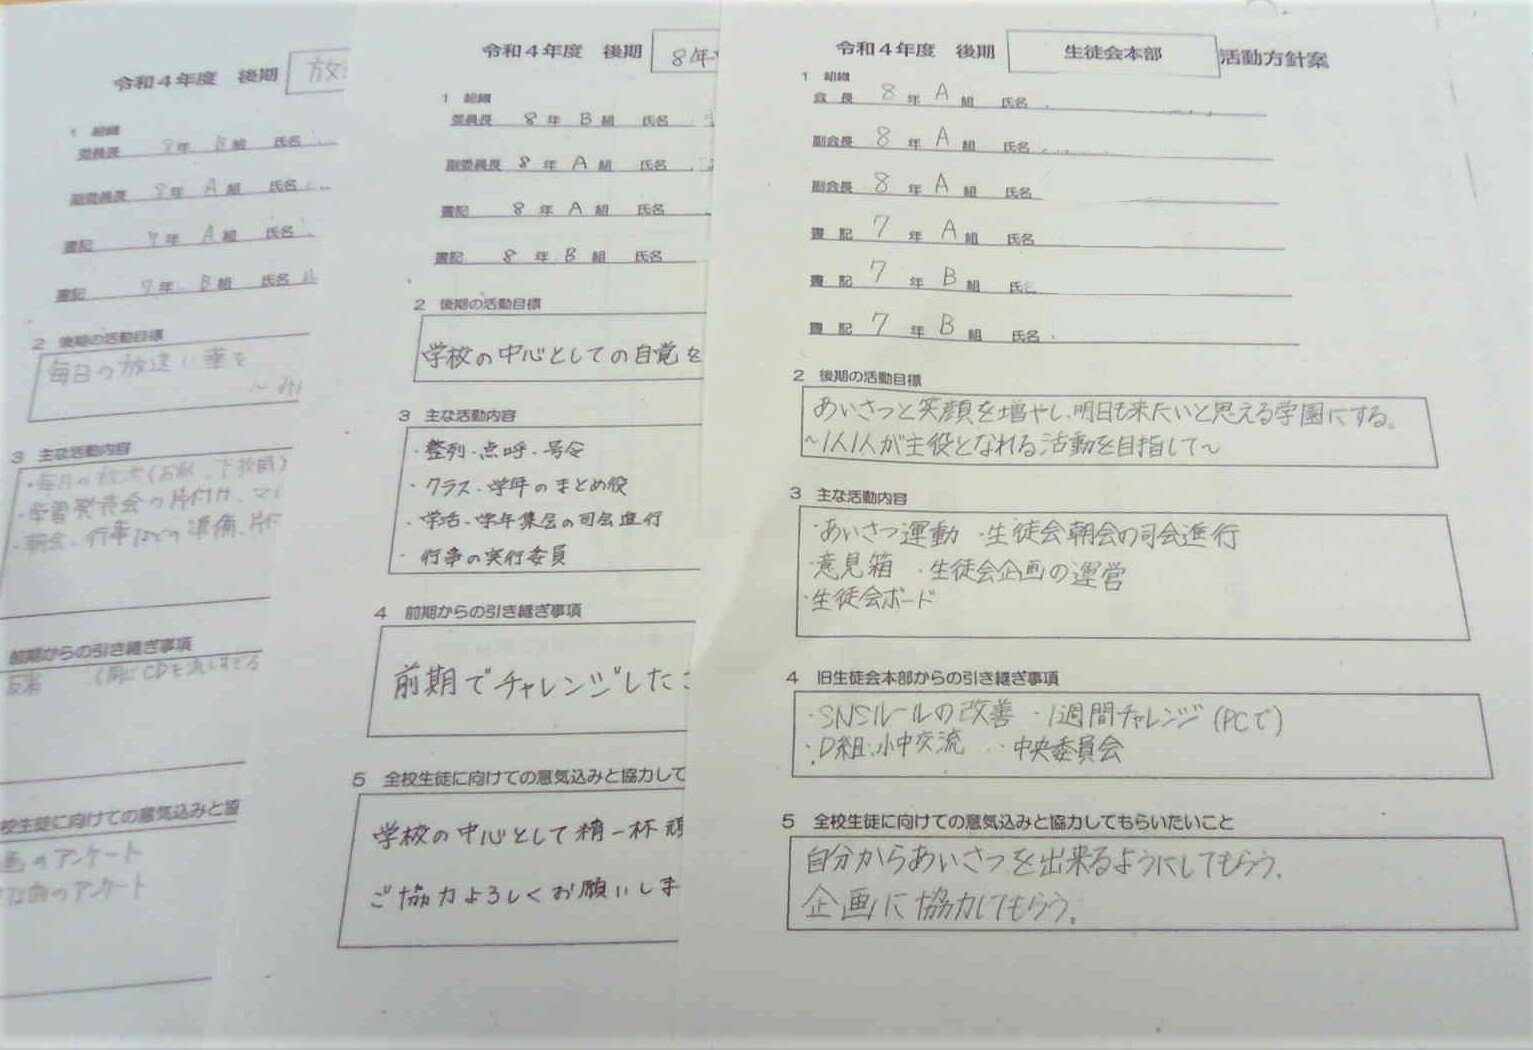 令和4年度 後期 生徒会本部 活動方針案
1 組織
会長 8年 A組 氏名
副会長 8年 A組 氏名
副会長 8年 A組 氏名
書記 7年 A組 氏名
書記 7年 B組 氏名
書記 7年 B組 氏名
2 後期の活動目標
あいさつと笑顔を増やし、明日も来たいと思える学園にする。
〜1人1人が主役となれる活動を目指して〜
3 主な活動内容
・あいさつ運動 ・生徒会朝会の司会進行
・意見箱 ・生徒会企画の運営
・生徒会ボード
4 旧生徒会本部からの引き継ぎ事項
・SNSルールの改善 ・1週間チャレンジ(PCで)
・D組、小中交流 ・中央委員会
5 全校生徒に向けての意気込みと協力してもらいたいこと
自分からあいさつを出来るようにしてもらう。
企画に協力してもらう。
令和4年度 後期 8年
1 組織
委員長 8年 B組 氏名
副委員長 8年 A組 氏名
書記 8年 A組 氏名
書記 8年 B組 氏名
2 後期の活動目標
学校の中心としての自覚を
3 主な活動内容
・整列・点呼・号令
・クラス・学年のまとめ役
・学活・学年集会の司会進行
・行事の実行委員
4 前期からの引き継ぎ事項
前期でチャレンジしたこ
5 全校生徒に向けての意気込みと協力して
学校の中心として精一杯頑
ご協力よろしくお願いしま
令和4年度 後期 放
1 組織
委員長 8年 B組 氏名
副委員長 8年 A組 氏名
書記 7年 A組 氏名
書記 7年 B組 氏名
2 後期の活動目標
毎日の放送に華を
3 主な活動内容
・毎日の放送
・学習発表会の片付け、マイ
・朝会、行事などの準備、片付
前期からの引き継ぎ事項
校生徒に向けての意気込みと協
画のアンケート
曲のアンケート